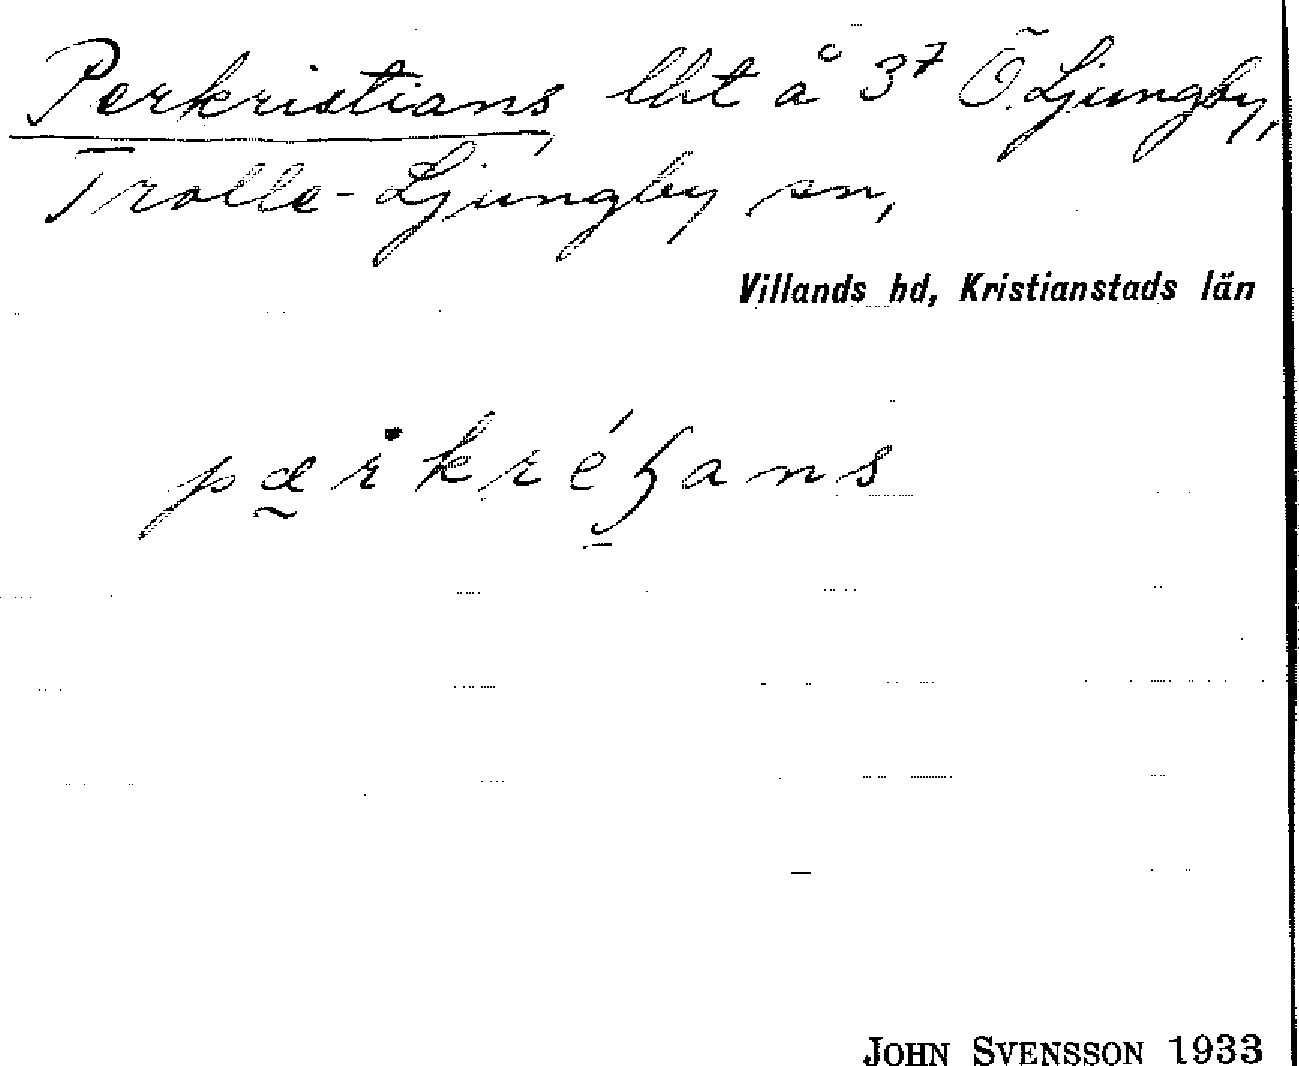 Perkristians, lht å 3⁷ Ö. Ljungby,
Trolle-Ljungby sn,
Villands hd, Kristianstads län
JOHN SVENSSON 1933